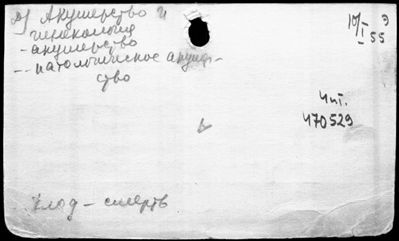 Акушерство и
гинекология
- акушерство
-- патологическое акушер-
ство
10/I 55
Чит.
470529
Плод - смерть